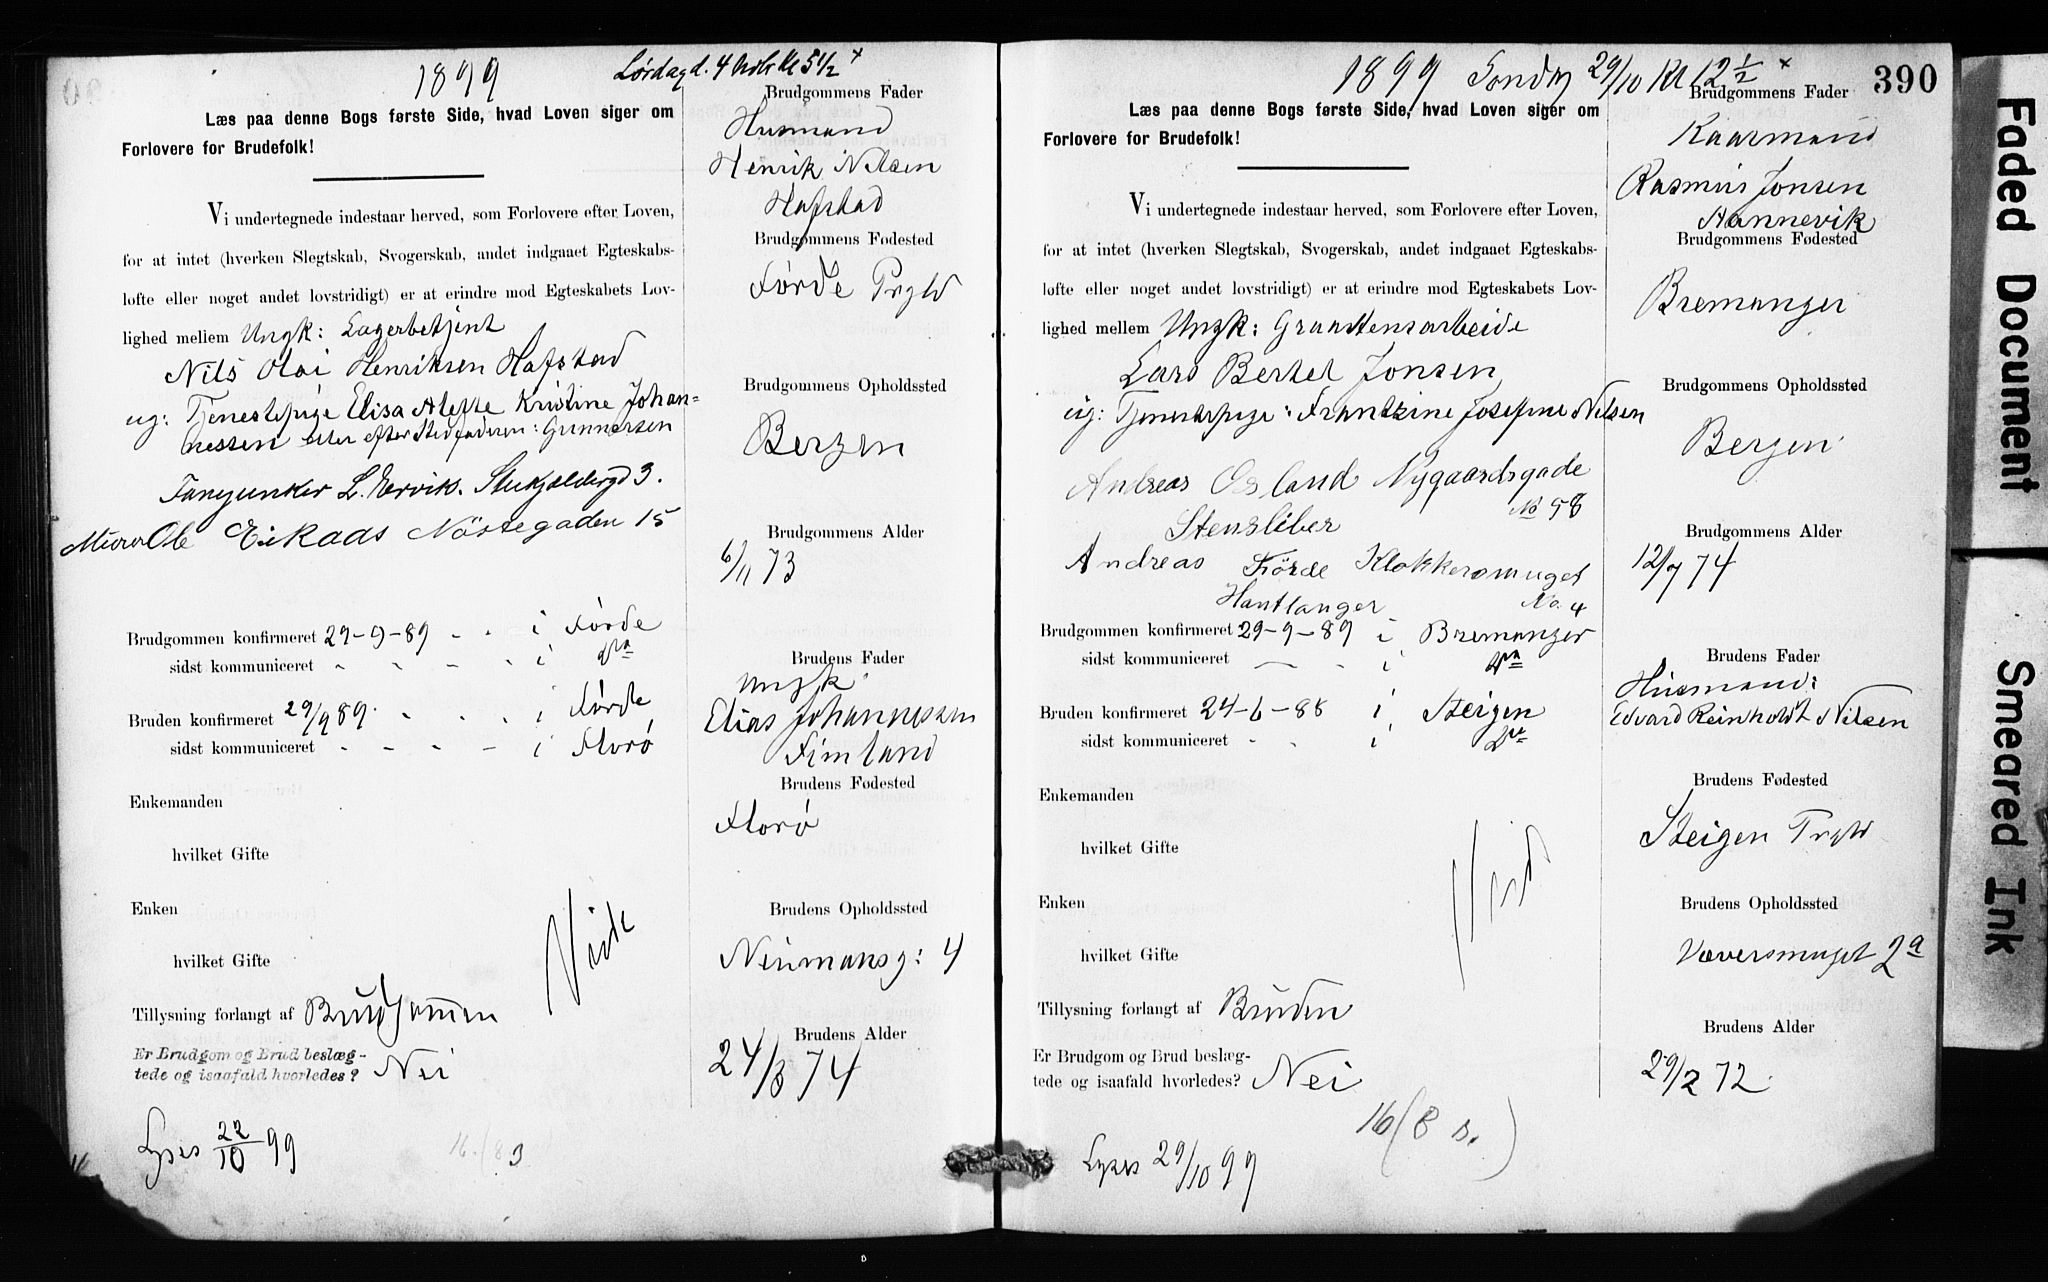 1899 Lørdag d. 4 Novbr Kl 5 1/2 x
Læs paa denne Bogs første Side, hvad Loven siger om
Forlovere for Brudefolk!
Vi undertegnede indestaar herved, som Forlovere efter Loven,
for at intet (hverken Slegtskab, Svogerskab, andet indgaaet Egteskabs-
løfte eller noget andet lovstridigt) er at erindre mod Egteskabets Lov-
lighed mellem Ungk: Lagerbetjent
Nils Olai Henriksen Hafstad
og: Tjenestepige Elisa Alette Kristine Johan=
nessen eller efter Stedfaderen: Gunnarsen
L. Ervik. 3.
Murer Ole Eikaas Nöstegaden 15
Brudgommen konfirmeret 29-9-89 - - i Førde
sidst kommuniceret - - - - i do
Bruden konfirmeret 29/9 89 - - - i Førde
sidst kommuniceret - - - - i Florø
Enkemanden
hvilket Gifte
Enken
hvilket Gifte
Viet
Tillysning forlangt af Brudgommen
Er Brudgom og Brud beslæg-
tede og isaafald hvorledes? Nei
Lyses 22/10 99
16. (8 3
Brudgommens Fader
Husmand
Henrik Nilsen
Hafstad
Brudgommens Fødested
Førde Prgld
Brudgommens Opholdssted
Bergen
Brudgommens Alder
6/11 73
Brudens Fader
Ungk.
Elias Johannessen
Fimland
Brudens Fødested
Florø
Brudens Opholdssted
Neumansg: 4
Brudens Alder
24/8 74
1899 Søndag 29/10 Kl 12 1/2 x
390
Læs paa denne Bogs første Side, hvad Loven siger om
Forlovere for Brudefolk!
Vi undertegnede indestaar herved, som Forlovere efter Loven,
for at intet (hverken Slegtskab, Svogerskab, andet indgaaet Egteskabs-
løfte eller noget andet lovstridigt) er at erindre mod Egteskabets Lov-
lighed mellem Ungk: Graastensarbeide
Lars Bertel Jonsen
og: Tjenestepige: Frantzine Josefine Nilsen
Andreas Osland Nygaardsgade
No 98
Stensliber
Andreas Förde Klokkersmuget
Hantlanger No. 4
Brudgommen konfirmeret 29-9-89 i Bremanger
sidst kommuniceret - - i do
Bruden konfirmeret 24-6-88 i Steigen
sidst kommuniceret - - i do
Enkemanden
hvilket Gifte
Enken
hvilket Gifte
Viet
Tillysning forlangt af Bruden
Er Brudgom og Brud beslæg-
tede og isaafald hvorledes? Nei
16 (8 s.)
Lyses 29/10 99
Brudgommens Fader
Kaarmand
Rasmus Jonsen
Hannevik
Brudgommens Fødested
Bremanger
Brudgommens Opholdssted
Bergen
Brudgommens Alder
12/7 74
Brudens Fader
Husmand:
Edvard Reinholdt Nilsen
Brudens Fødested
Steigen Prgld
Brudens Opholdssted
Væversmuget 2a
Brudens Alder
29/2 72
Faded Document
Smeared Ink